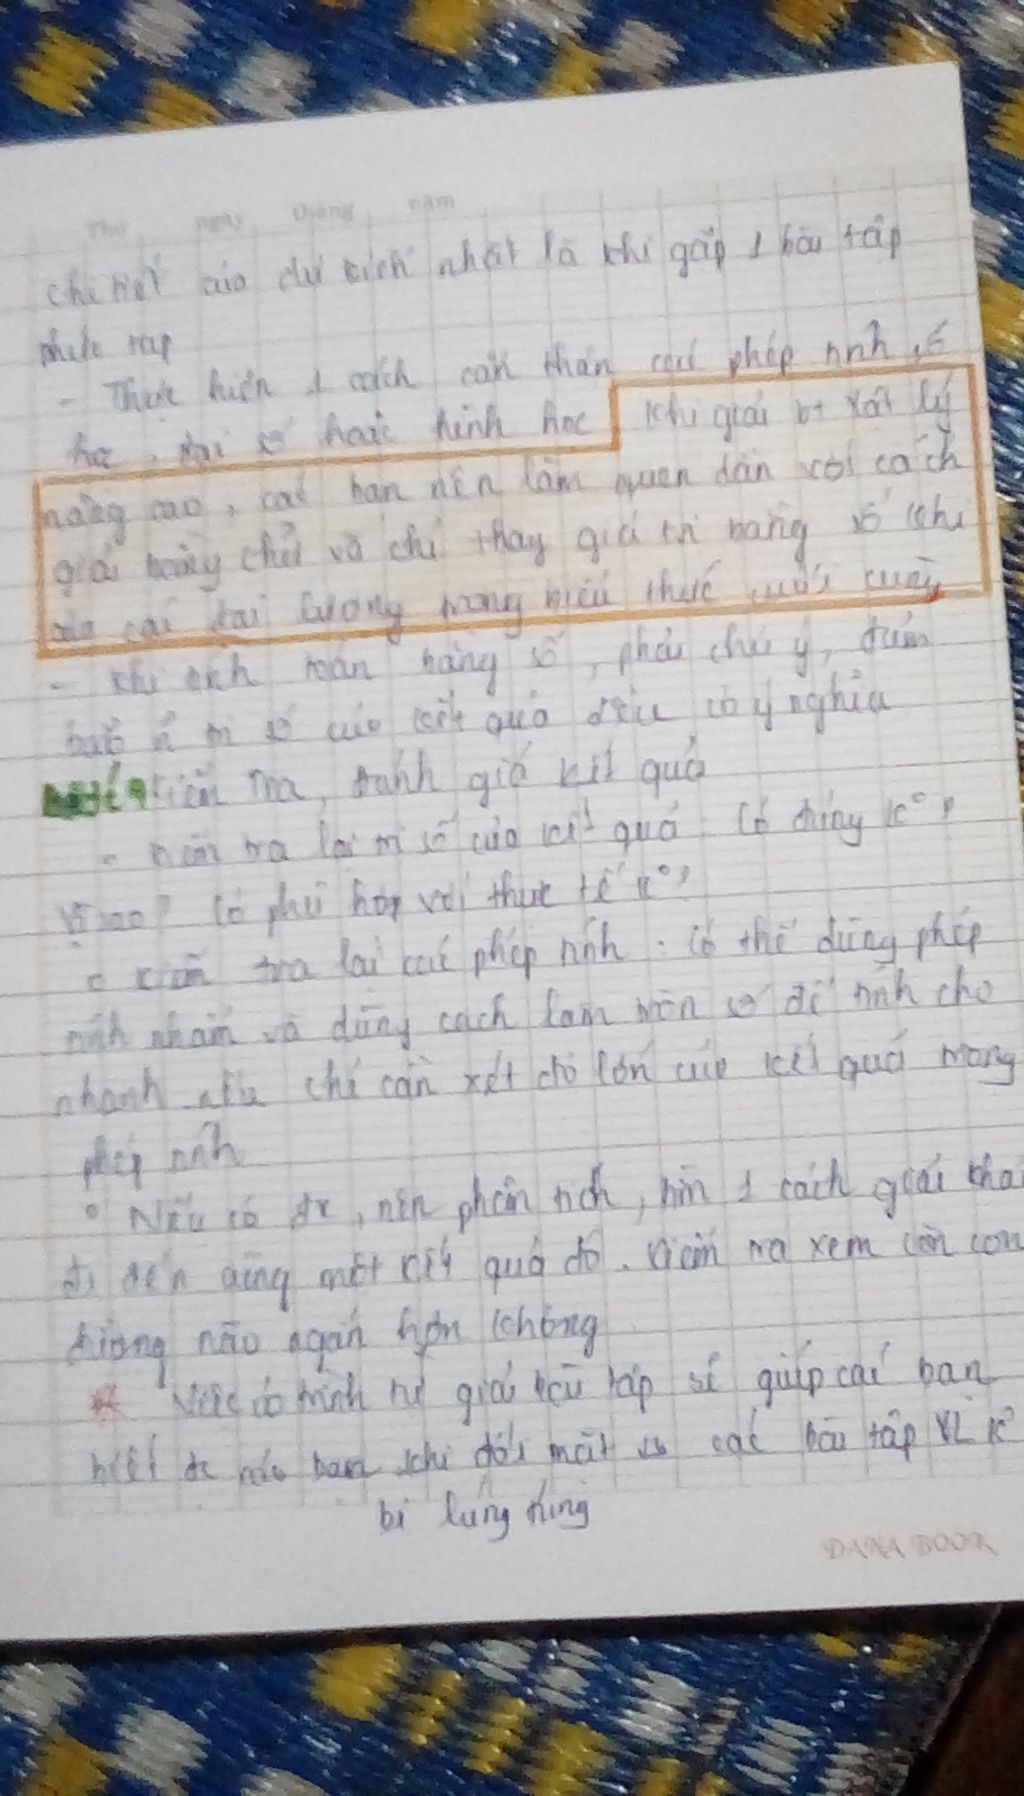 Thứ ngày tháng năm
chi tiết của dữ kiện nhất là khi gặp 1 bài tập
phức tạp
- Thực hiện 1 cách cẩn thận các phép tính số
học, đại số hoặc hình học Khi giải bt vật lý
nâng cao, các bạn nên làm quen dần với cách
giải bằng chữ và chỉ thay giá trị bằng số khi
các đại lượng trong biểu thức cuối cùng
- Khi tính toán bằng số, phải chú ý, đảm
bảo trị số của kết quả đều có ý nghĩa
Kiểm tra, đánh giá kết quả
- Kiểm tra lại trị số của kết quả: Có đúng k°?
Vì sao? Có phù hợp với thực tế k°?
Kiểm tra lại các phép tính: Có thể dùng phép
tính nhẩm và dùng cách làm tròn số để tính cho
nhanh chỉ cần xét độ lớn của kết quả trong
phép tính
Nếu có đk, nên phân tích, tìm 1 cách giải
đi đến cùng một kết quả đó. Kiểm tra xem còn con
đường nào ngắn hơn không
Việc có trình tự giải bài tập sẽ giúp các bạn
khi đối mặt các bài tập VL k°
bị lúng túng
DANA BOOK